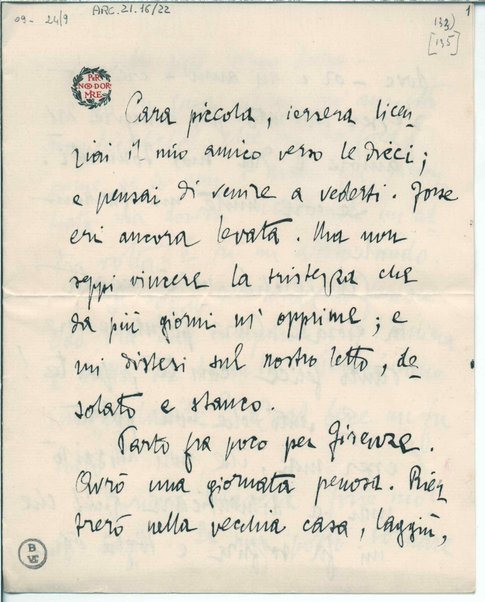 ARC.21.16/22
1
09- 24/9
133)
[135]
PER
NON DOR
MIRE
Cara piccola, iersera licen
ziai il mio amico verso le dieci;
e pensai di venire a vederti. Forse
eri ancora levata. Ma non
seppi vincere la tristezza che
da più giorni m'opprime; e
mi distesi sul nostro letto, de_
solato e stanco.
Parto fra poco per Firenze.
Avrò una giornata penosa. Rien
trerò nella vecchia casa, laggiù,